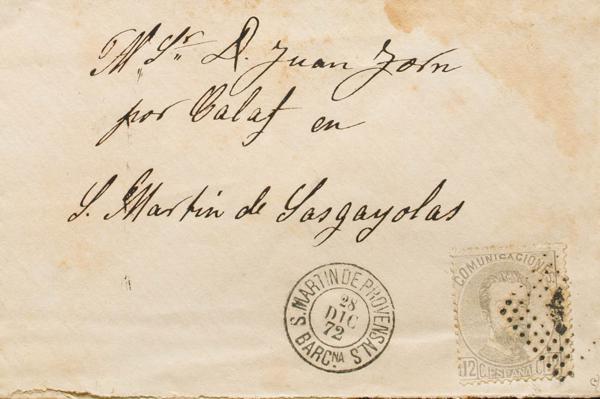 M. Sr. D. Juan Zorn
por Calaf en
S. Martin de Sasgayolas
S. MARTIN DE PROVENSALS
28
DIC
72
BARC.NA
COMUNICACIONES
12 C. ESPAÑA